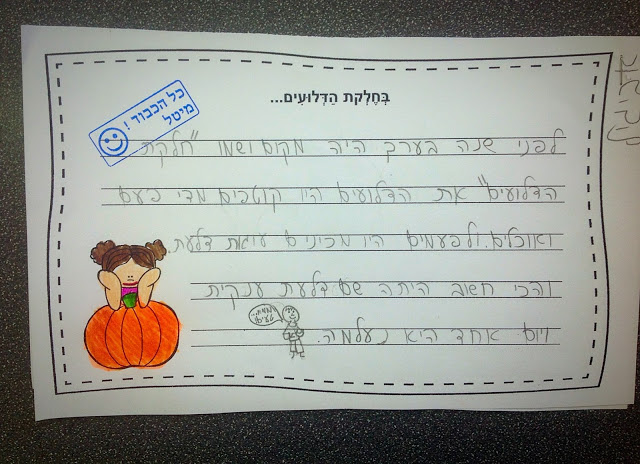 בְּחֶלְקַת הַדְּלוּעִים...
כל הכבוד!
מיטל
לפני שנה בערך היה מקום ושמו "חלקת
הדלועים" את הדלועים היו קוטפים מדי פעם
ואוכלים. ולפעמים היו מכינים עוגת דלעת.
והכי חשוב היתה שם דלעת ענקית
ויום אחד היא נעלמה.
טעים!